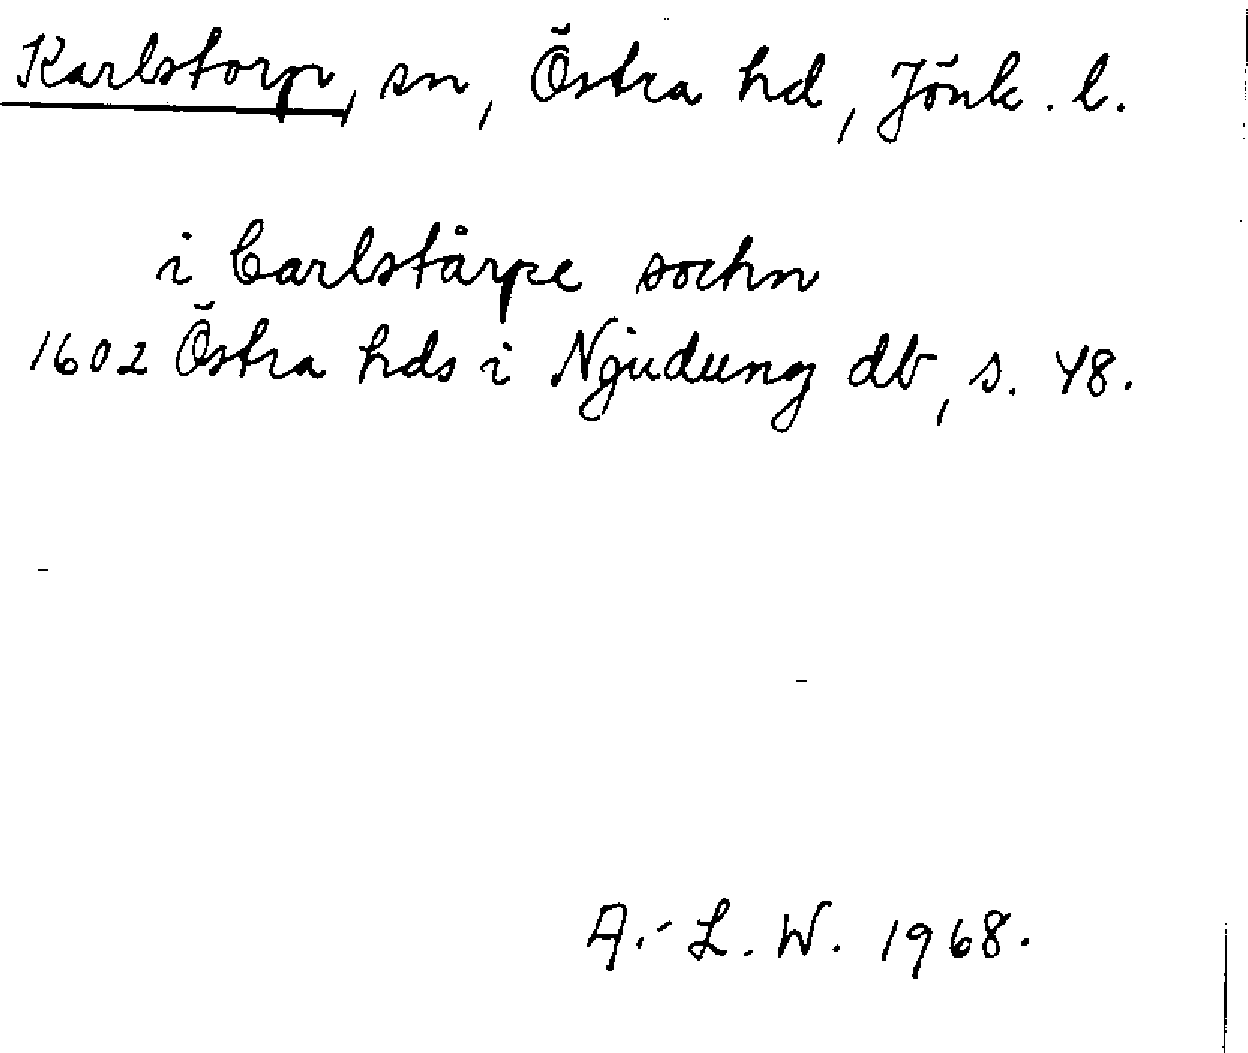 Karlstorp, sn, Östra hd, Jönk. l.
i Carlstårpe sochn
1602 Östra hds i Njudung db, s. 48.
A.-L. W. 1968.